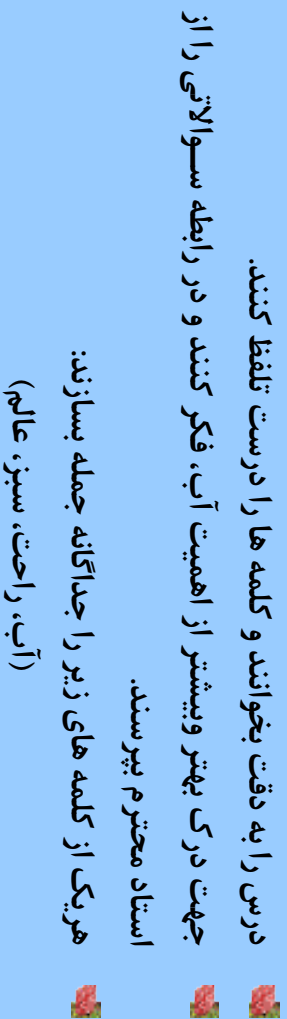 درس را به دقت بخوانند و کلمه ها را درست تلفظ کنند.
جهت درک بهتر وبیشتر از اهمیت آب، فکر کنند و در رابطه سـوالاتی را از
استاد محترم بپرسند.
هریک از کلمه های زیر را جداگانه جمله بسازند:
(آب، راحت، سبز، عالم)